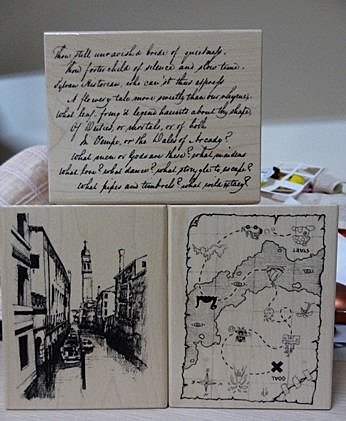 Thou still unravish'd bride of quietness,
Thou foster child of silence and slow time,
Sylvan Historian, who can'st thus express
A flowery tale more sweetly than our rhyme:
What leaf-fring'd legend haunts about thy shape
Of Deities, or mortals, or of both
In Tempe, or the Dales of Arcady?
What men or Gods are these? what maidens
What love? what dance? what struggle to escape?
What pipes and timbrels? what wild extacy?
START
GOAL